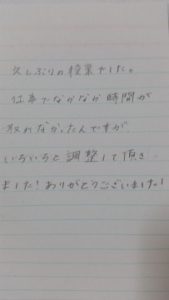 久しぶりの授業でした。
仕事でなかなか時間が
取れなかったんですが、
いろいろと調整して頂き
ました！ありがとうございました！